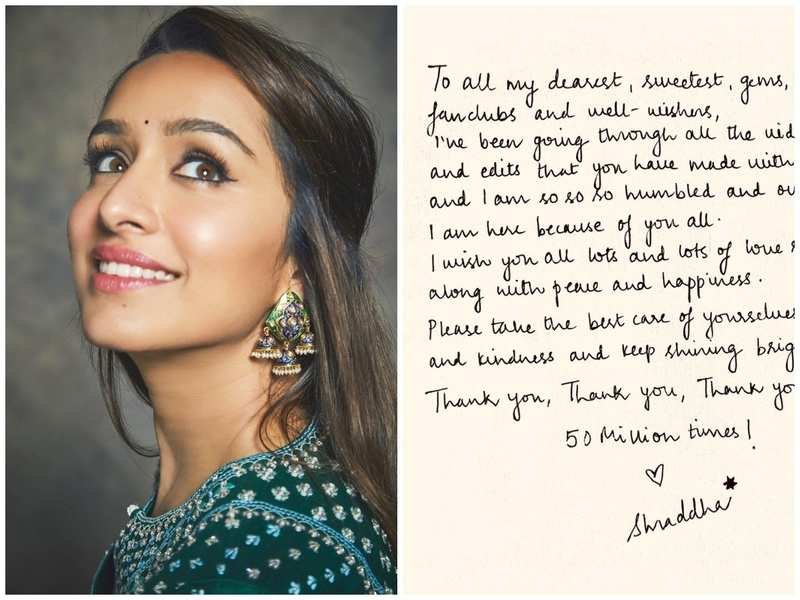 To all my dearest, sweetest, gems,
fanclubs and well-wishers,
I've been going through all the vid
and edits that you have made with
and I am so so so humbled and ov
I am here because of you all.
I wish you all lots and lots of love
along with peace and happiness.
Please take the best care of yourselves
and kindness and keep shining brig
Thank you, Thank you, Thank yo
50 Million times!
Shraddha